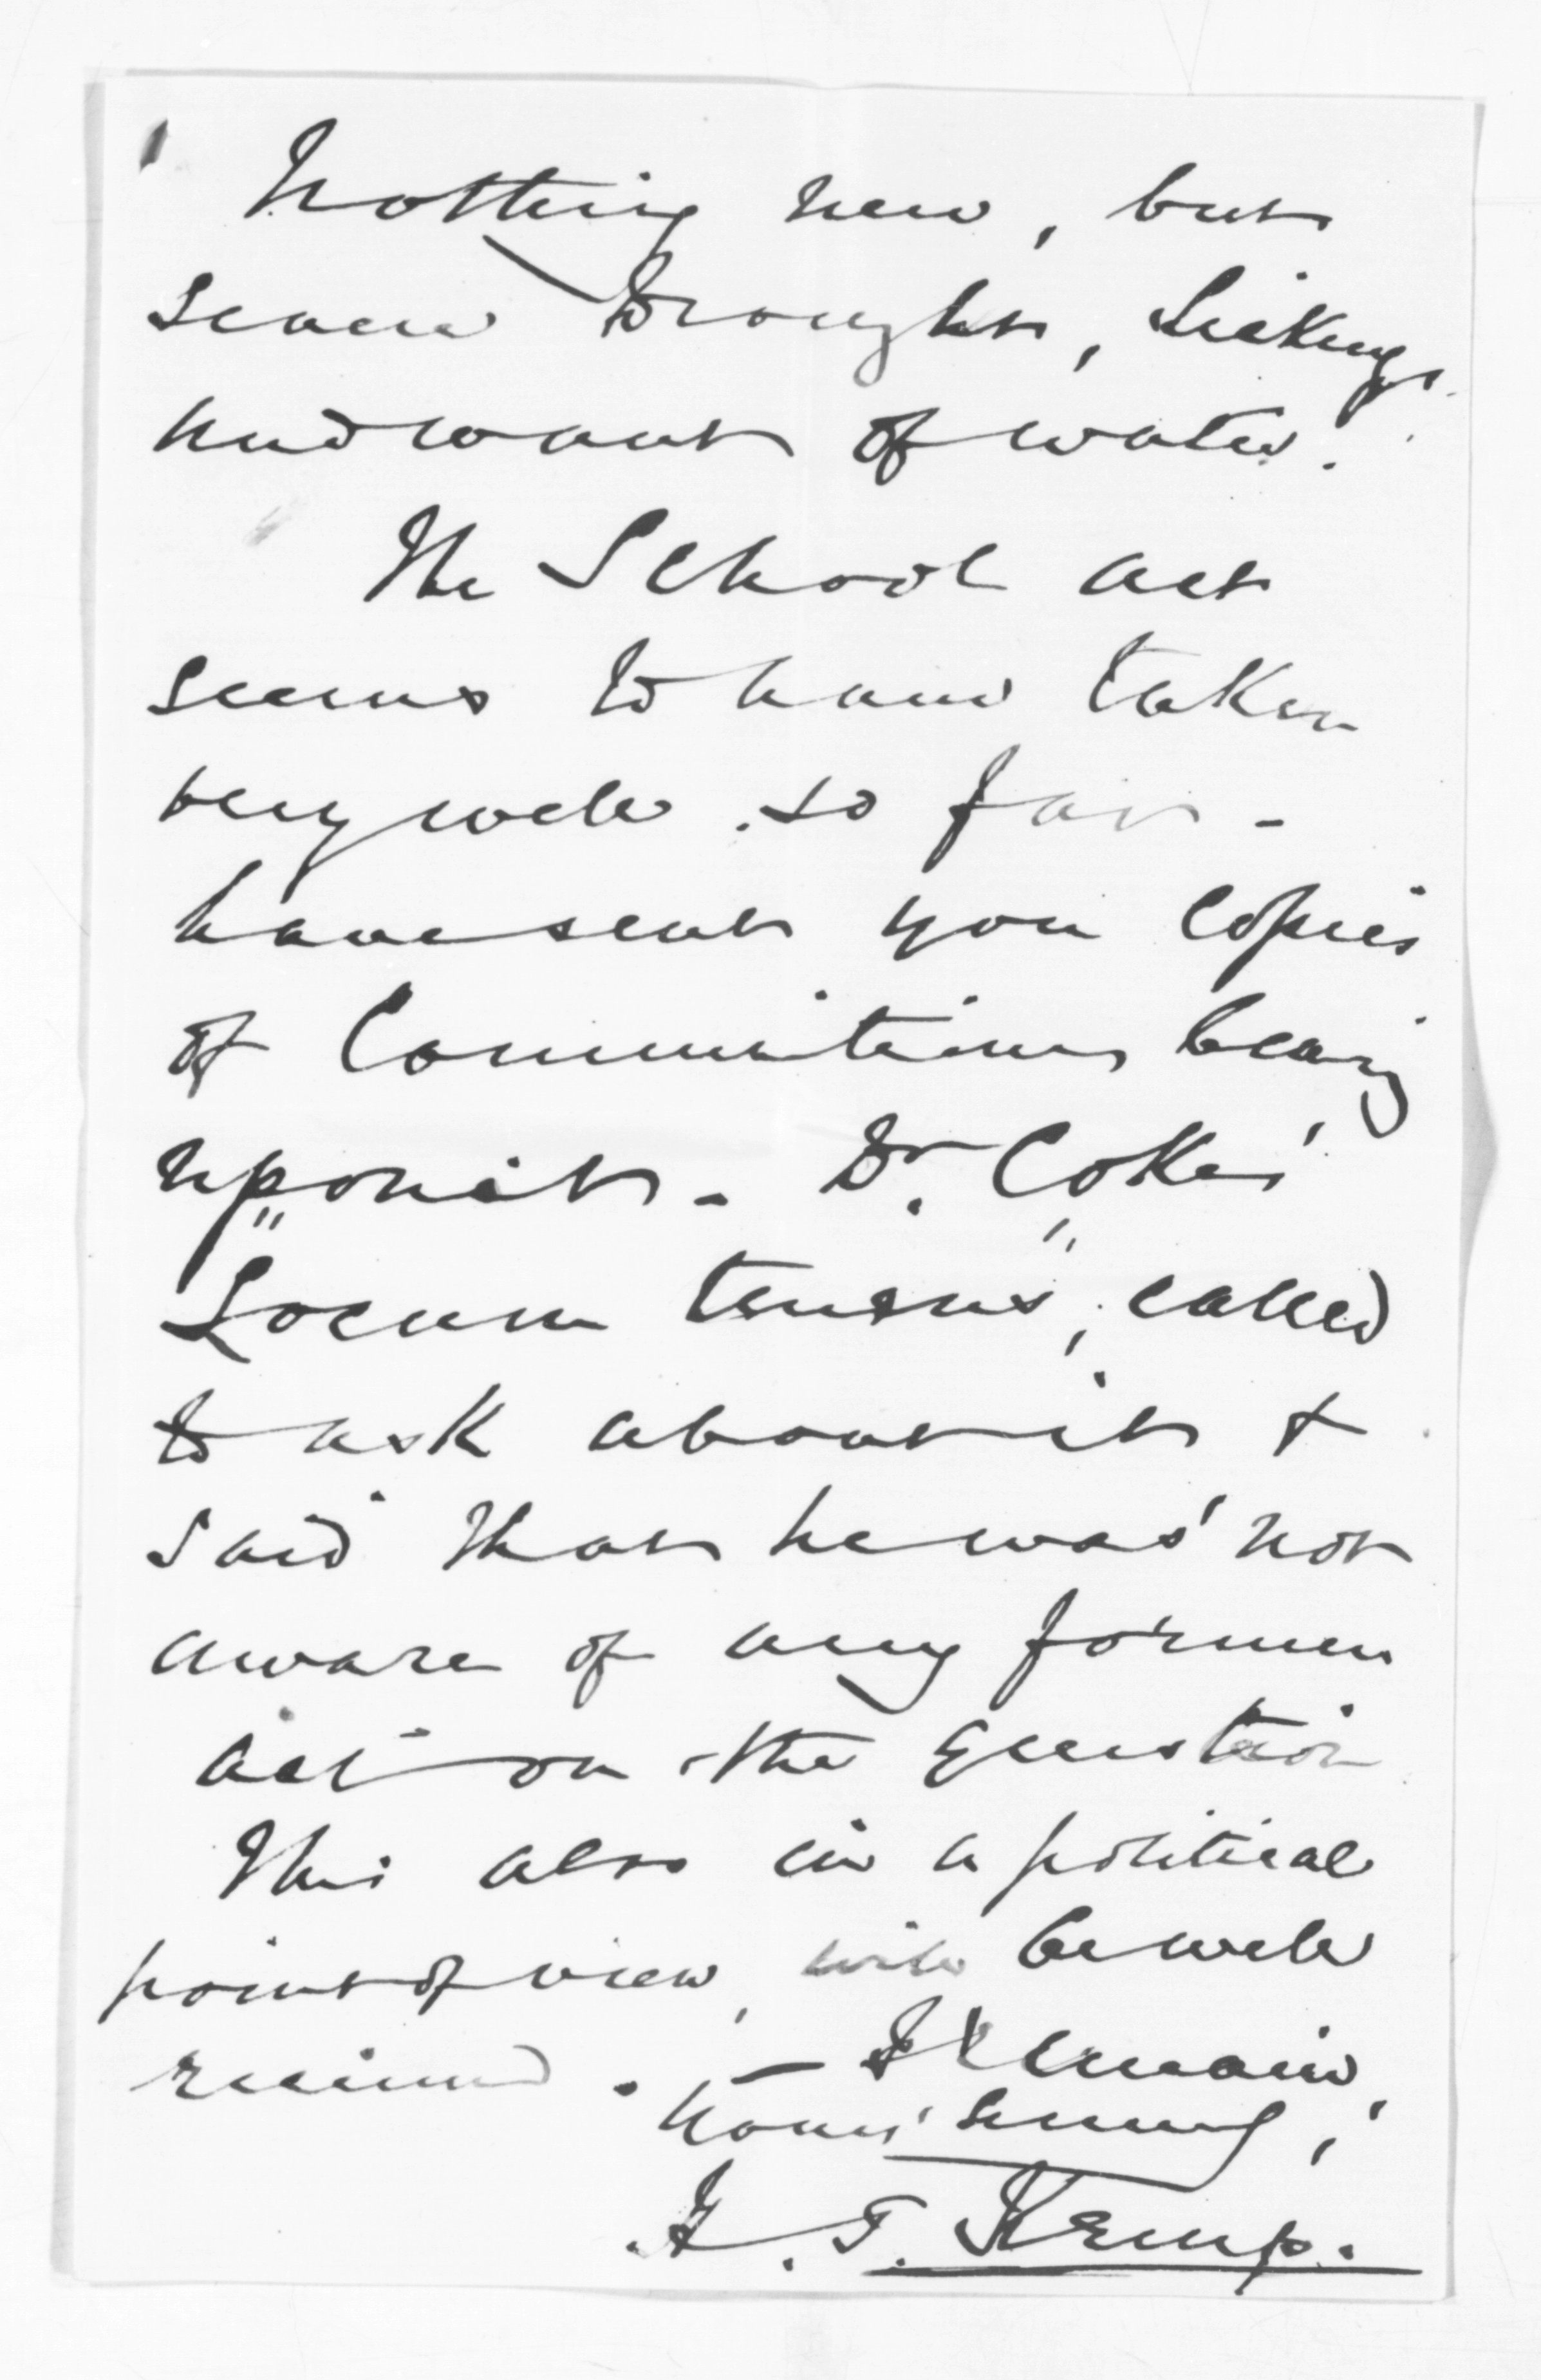 Nothing new, but
severe Drought, Sickness
and want of water.
The School act
seems to have taken
very well so far -
have sent you Copies
of Communications bearing
upon it - Dr. Cokes'
"Locum tenens", called
to ask about it +
said that he was not
aware of any former
act on the question
This also in a political
point of view, will be well
received. - I remain,
Yours sincerely,
T. Kemp.